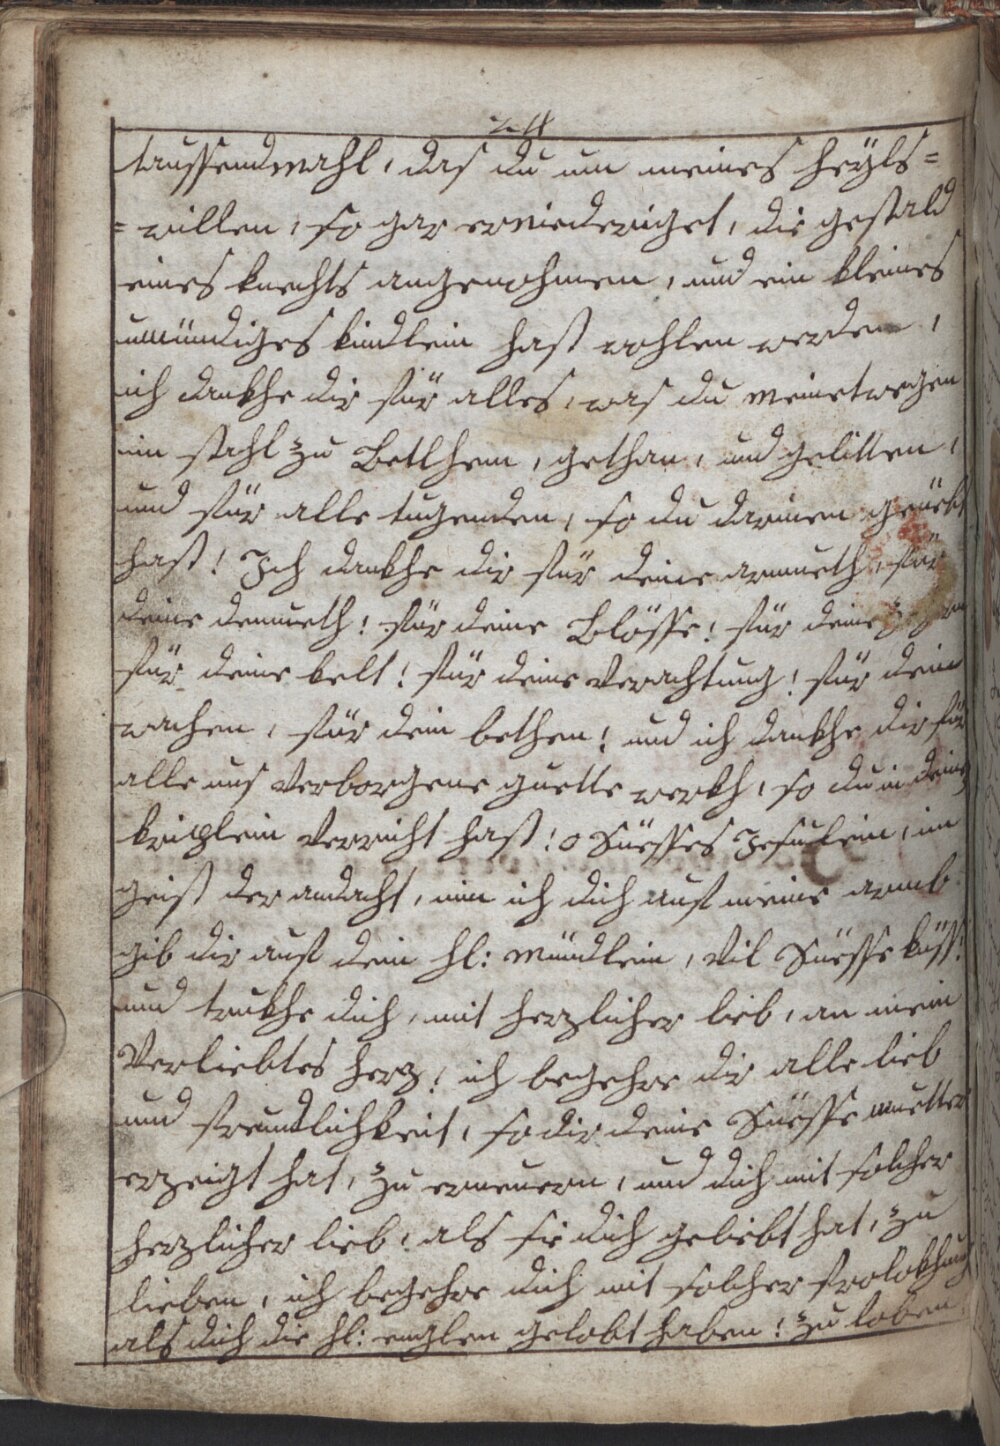 taussendmahl, das du um meines heÿls=
=willen, so gar erniederiget, die gestald
eines knechts angenohmen, und ein kleines
unmündiges kindlein hast wohlen werden,
ich dankhe dir für alles, was du meinetwegen
im stahl zu Betlhem, gethan, und gelitten,
und für alle tugenden, so du darinen geüebt
hast! Ich dankhe dir für deine armueth, für
deine demueth! für deine Blösse! für deine
für deine kelt! für deine Verachtung! für dein
wachen, für dein bethen! und ich dankhe dir für
alle uns Verborgene guette werkh, so du in deine
kriplein Verricht hast! o Süesses Jesulein, im
geist der andacht, nim ich dich auf meine armb
gib dir auf dein hl: mündlein, Vil Süesse küss!
und trukhe dich, mit herzlicher lieb, an mein
Verliebtes herz! ich begehre dir alle lieb
und freundlichkeit, so dir deine Süesse muetter
erzeigt hat, zu erneuern, und dich mit solcher
herzlicher lieb, als sie dich geliebt hat, zu
lieben, ich begehre dich mit solcher frolokhung
als dich die hl: englen gelobt haben! zu loben